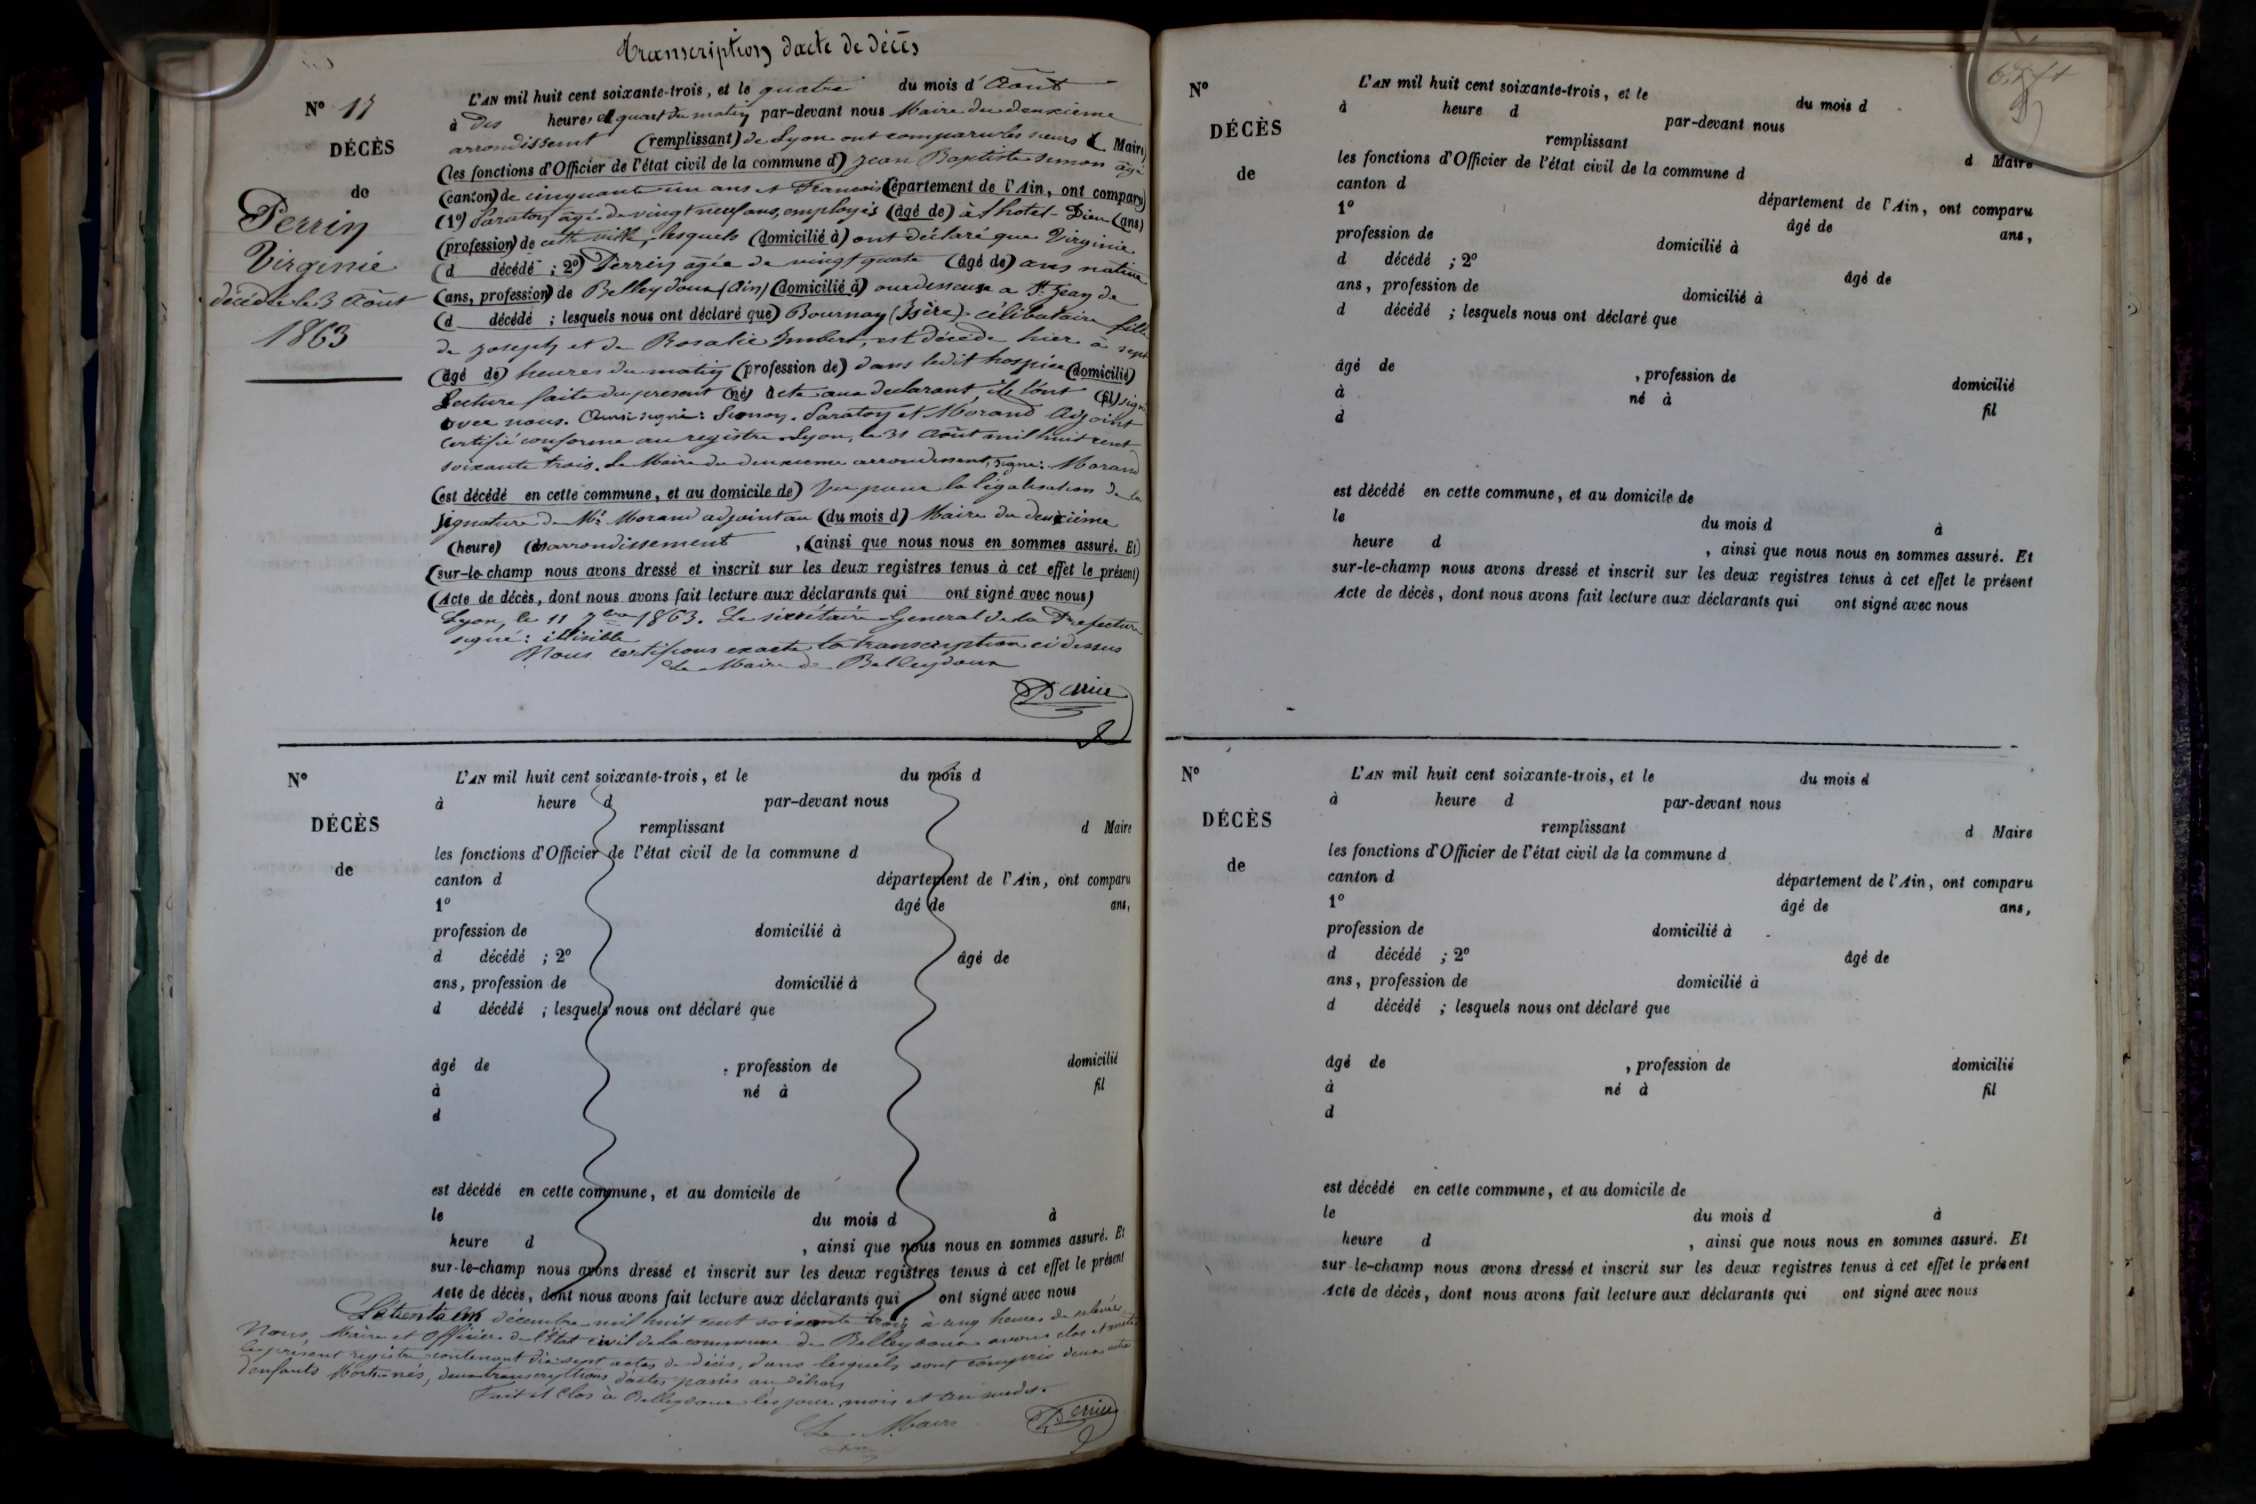 Transcription d'acte de décès
N° 17
DÉCÈS
de
Perrin
Virginie
décédée le 3 Août
1863
L'AN mil huit cent soixante-trois, et le quatre du mois d' Août
à dix heures et quart du matin par-devant nous Maire du deuxième
arrondissement (remplissant) de Lyon ont comparu les sieurs d Maire)
(les fonctions d'Officier de l'état civil de la commune d) Jean Baptiste Simon âgé
(canton) de cinquante un ans et François (épartement de l'Ain, ont comparu)
(1°) Saraton âgé de vingt neuf ans, employés (âgé de) à l'hotel-Dieu (ans)
(profession) de cette ville, lesquels (domicilié à) ont déclaré que Virginie
(d décédé ; 2°) Perrin agée de vingt quatre (âgé de) ans native
(ans, profession) de Belleydoux (Ain) (domicilié à) ourdisseuse a St Jean de
(d décédé ; lesquels nous ont déclaré que) Bournay (Isère). célibataire fille
de Joseph et de Rosalie Imbert, est décédée hier à sept
(âgé de) heures du matin (profession de) dans ledit hospice (domicilié)
Lecture faite du present (né) acte aux declarant, ils l'ont (fil) signé
avec nous. Ainsi signé: Simon. Saraton et Morand Adjoint
certifié conforme au registre Lyon, le 31 Août mil huit cent
soixante trois. Le Maire du deuxieme arrondissement, signé: Morand
(est décédé en cette commune, et au domicile de) Vu pour la légalisation de la
signature de Mr Morand adjoint au (du mois d) Maire du deuxième
(heure) (d) arrondissement , (ainsi que nous nous en sommes assuré. Et)
(sur-le-champ nous avons dressé et inscrit sur les deux registres tenus à cet effet le présent)
(Acte de décès, dont nous avons fait lecture aux déclarants qui ont signé avec nous)
Lyon, le 11 7bre 1863. Le sécrétaire General de la Prefecture
signé: illisible
Nous certifions exacte la transcription ci dessus
Le Maire de Belleydoux
N°
DÉCÈS
de
L'AN mil huit cent soixante-trois, et le du mois d
à heure d par-devant nous
remplissant d Maire
les fonctions d'Officier de l'état civil de la commune d
canton d département de l'Ain, ont comparu
1° âgé de ans,
profession de domicilié à
d décédé ; 2° âgé de
ans, profession de domicilié à
d décédé ; lesquels nous ont déclaré que
âgé de , profession de domicilié
à né à fil
d
est décédé en cette commune, et au domicile de
le du mois d à
heure d , ainsi que nous nous en sommes assuré. Et
sur-le-champ nous avons dressé et inscrit sur les deux registres tenus à cet effet le présent
Acte de décès, dont nous avons fait lecture aux déclarants qui ont signé avec nous
Le trente un décembre mil huit cent soixante trois à cinq heures de relevée
Nous, Maire et Officier de l'État civil de la commune de Belleydoux avons clos et arrêté
le present registre contenant dix sept actes de décès, dans lesquels sont compris deux actes
d'enfants Morts-nés, deux transcriptions d'actes passés au dehors
Fait et Clos à Belleydoux les jour, mois et an susdits.
Le Maire
N°
DÉCÈS
de
L'AN mil huit cent soixante-trois, et le du mois d
à heure d par-devant nous
remplissant d Maire
les fonctions d'Officier de l'état civil de la commune d
canton d département de l'Ain, ont comparu
1° âgé de ans,
profession de domicilié à
d décédé ; 2° âgé de
ans, profession de domicilié à
d décédé ; lesquels nous ont déclaré que
âgé de , profession de domicilié
à né à fil
d
est décédé en cette commune, et au domicile de
le du mois d à
heure d , ainsi que nous nous en sommes assuré. Et
sur-le-champ nous avons dressé et inscrit sur les deux registres tenus à cet effet le présent
Acte de décès, dont nous avons fait lecture aux déclarants qui ont signé avec nous
N°
DÉCÈS
de
L'AN mil huit cent soixante-trois, et le du mois d
à heure d par-devant nous
remplissant d Maire
les fonctions d'Officier de l'état civil de la commune d
canton d département de l'Ain, ont comparu
1° âgé de ans,
profession de domicilié à
d décédé ; 2° âgé de
ans, profession de domicilié à
d décédé ; lesquels nous ont déclaré que
âgé de , profession de domicilié
à né à fil
d
est décédé en cette commune, et au domicile de
le du mois d à
heure d , ainsi que nous nous en sommes assuré. Et
sur-le-champ nous avons dressé et inscrit sur les deux registres tenus à cet effet le présent
Acte de décès, dont nous avons fait lecture aux déclarants qui ont signé avec nous